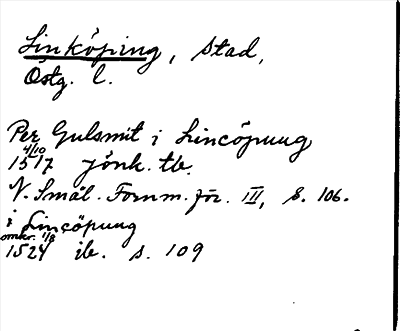 Linköping, stad,
Östg. l.
Per Gulsmit i Lincöpung
4/10
1517 Jönk. tb.
N. Smål. Fornm. för. III, s. 106.
i Lincöpung
omkr. 1/8
1524 ib. s. 109